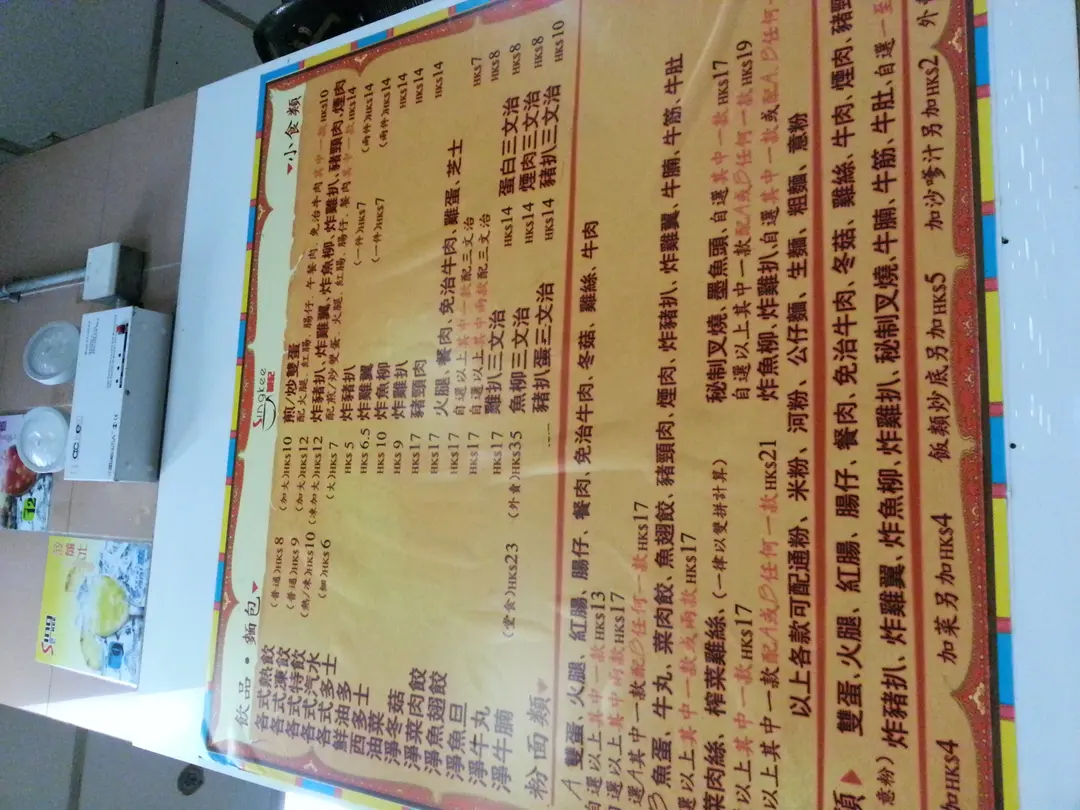 Singkee
飲品·麵包
各式熱飲 (普通)HK$8 (加大)HK$10
各式凍飲 (普通)HK$9 (加大)HK$12
各式特飲 (熱/凍)HK$10 (凍加大)HK$12
各式汽水 (細)HK$6 (大)HK$7
鮮油多士 HK$5
西多士 HK$6.5
油菜 HK$10
淨冬菇 HK$9
淨菜肉餃 HK$17
淨魚翅餃 HK$17
淨魚旦 HK$17
淨牛丸 HK$17
淨牛腩 (堂食)HK$23 (外食)HK$35
小食類
煎/炒雙蛋 HK$10
配火腿、紅腸、腸仔、午餐肉、免治牛肉其中一款HK$14
炸豬扒、炸雞翼、炸魚柳、炸雞扒、豬頸肉、煙肉
配煎/炒雙蛋、火腿、紅腸、腸仔、餐肉其中一款HK$14
炸豬扒 (一件)HK$7 (兩件)HK$14
炸雞翼 (一件)HK$7 (兩件)HK$14
炸魚柳 HK$14
炸雞扒 HK$14
豬頸肉 HK$14
火腿、餐肉、免治牛肉、雞蛋、芝士
自選以上其中一款配三文治 HK$7
自選以上其中兩款配三文治 HK$8
雞扒三文治 HK$14 蛋白三文治 HK$8
魚柳三文治 HK$14 煙肉三文治 HK$8
豬扒蛋三文治 HK$14 豬扒三文治 HK$10
粉面類
A 雙蛋、火腿、紅腸、腸仔、餐肉、免治牛肉、冬菇、雞絲、牛肉
自選以上其中一款HK$13
自選以上其中兩款HK$17
選A其中一款配B任何一款HK$17
B 魚蛋、牛丸、菜肉餃、魚翅餃、豬頸肉、煙肉、炸豬扒、炸雞翼、牛腩、牛筋、牛肚
選以上其中一款或兩款HK$17
菜肉絲、榨菜雞絲、(一律以雙拼計算)
選以上其中一款HK$17
以上其中一款配A或B任何一款HK$21
秘制叉燒、墨魚頭、自選其中一款HK$17
自選以上其中一款配A或B任何一款HK$19
炸魚柳、炸雞扒、自選其中一款或配A、B任何一
以上各款可配通粉、米粉、河粉、公仔麵、生麵、粗麵、意粉
類 雙蛋、火腿、紅腸、腸仔、餐肉、免治牛肉、冬菇、雞絲、牛肉、煙肉、豬頸
意粉) 炸豬扒、炸雞翼、炸魚柳、炸雞扒、秘制叉燒、牛腩、牛筋、牛肚、自選一至
加HK$4 加菜另加HK$4 飯類炒底另加HK$5 加沙嗲汁另加HK$2 外